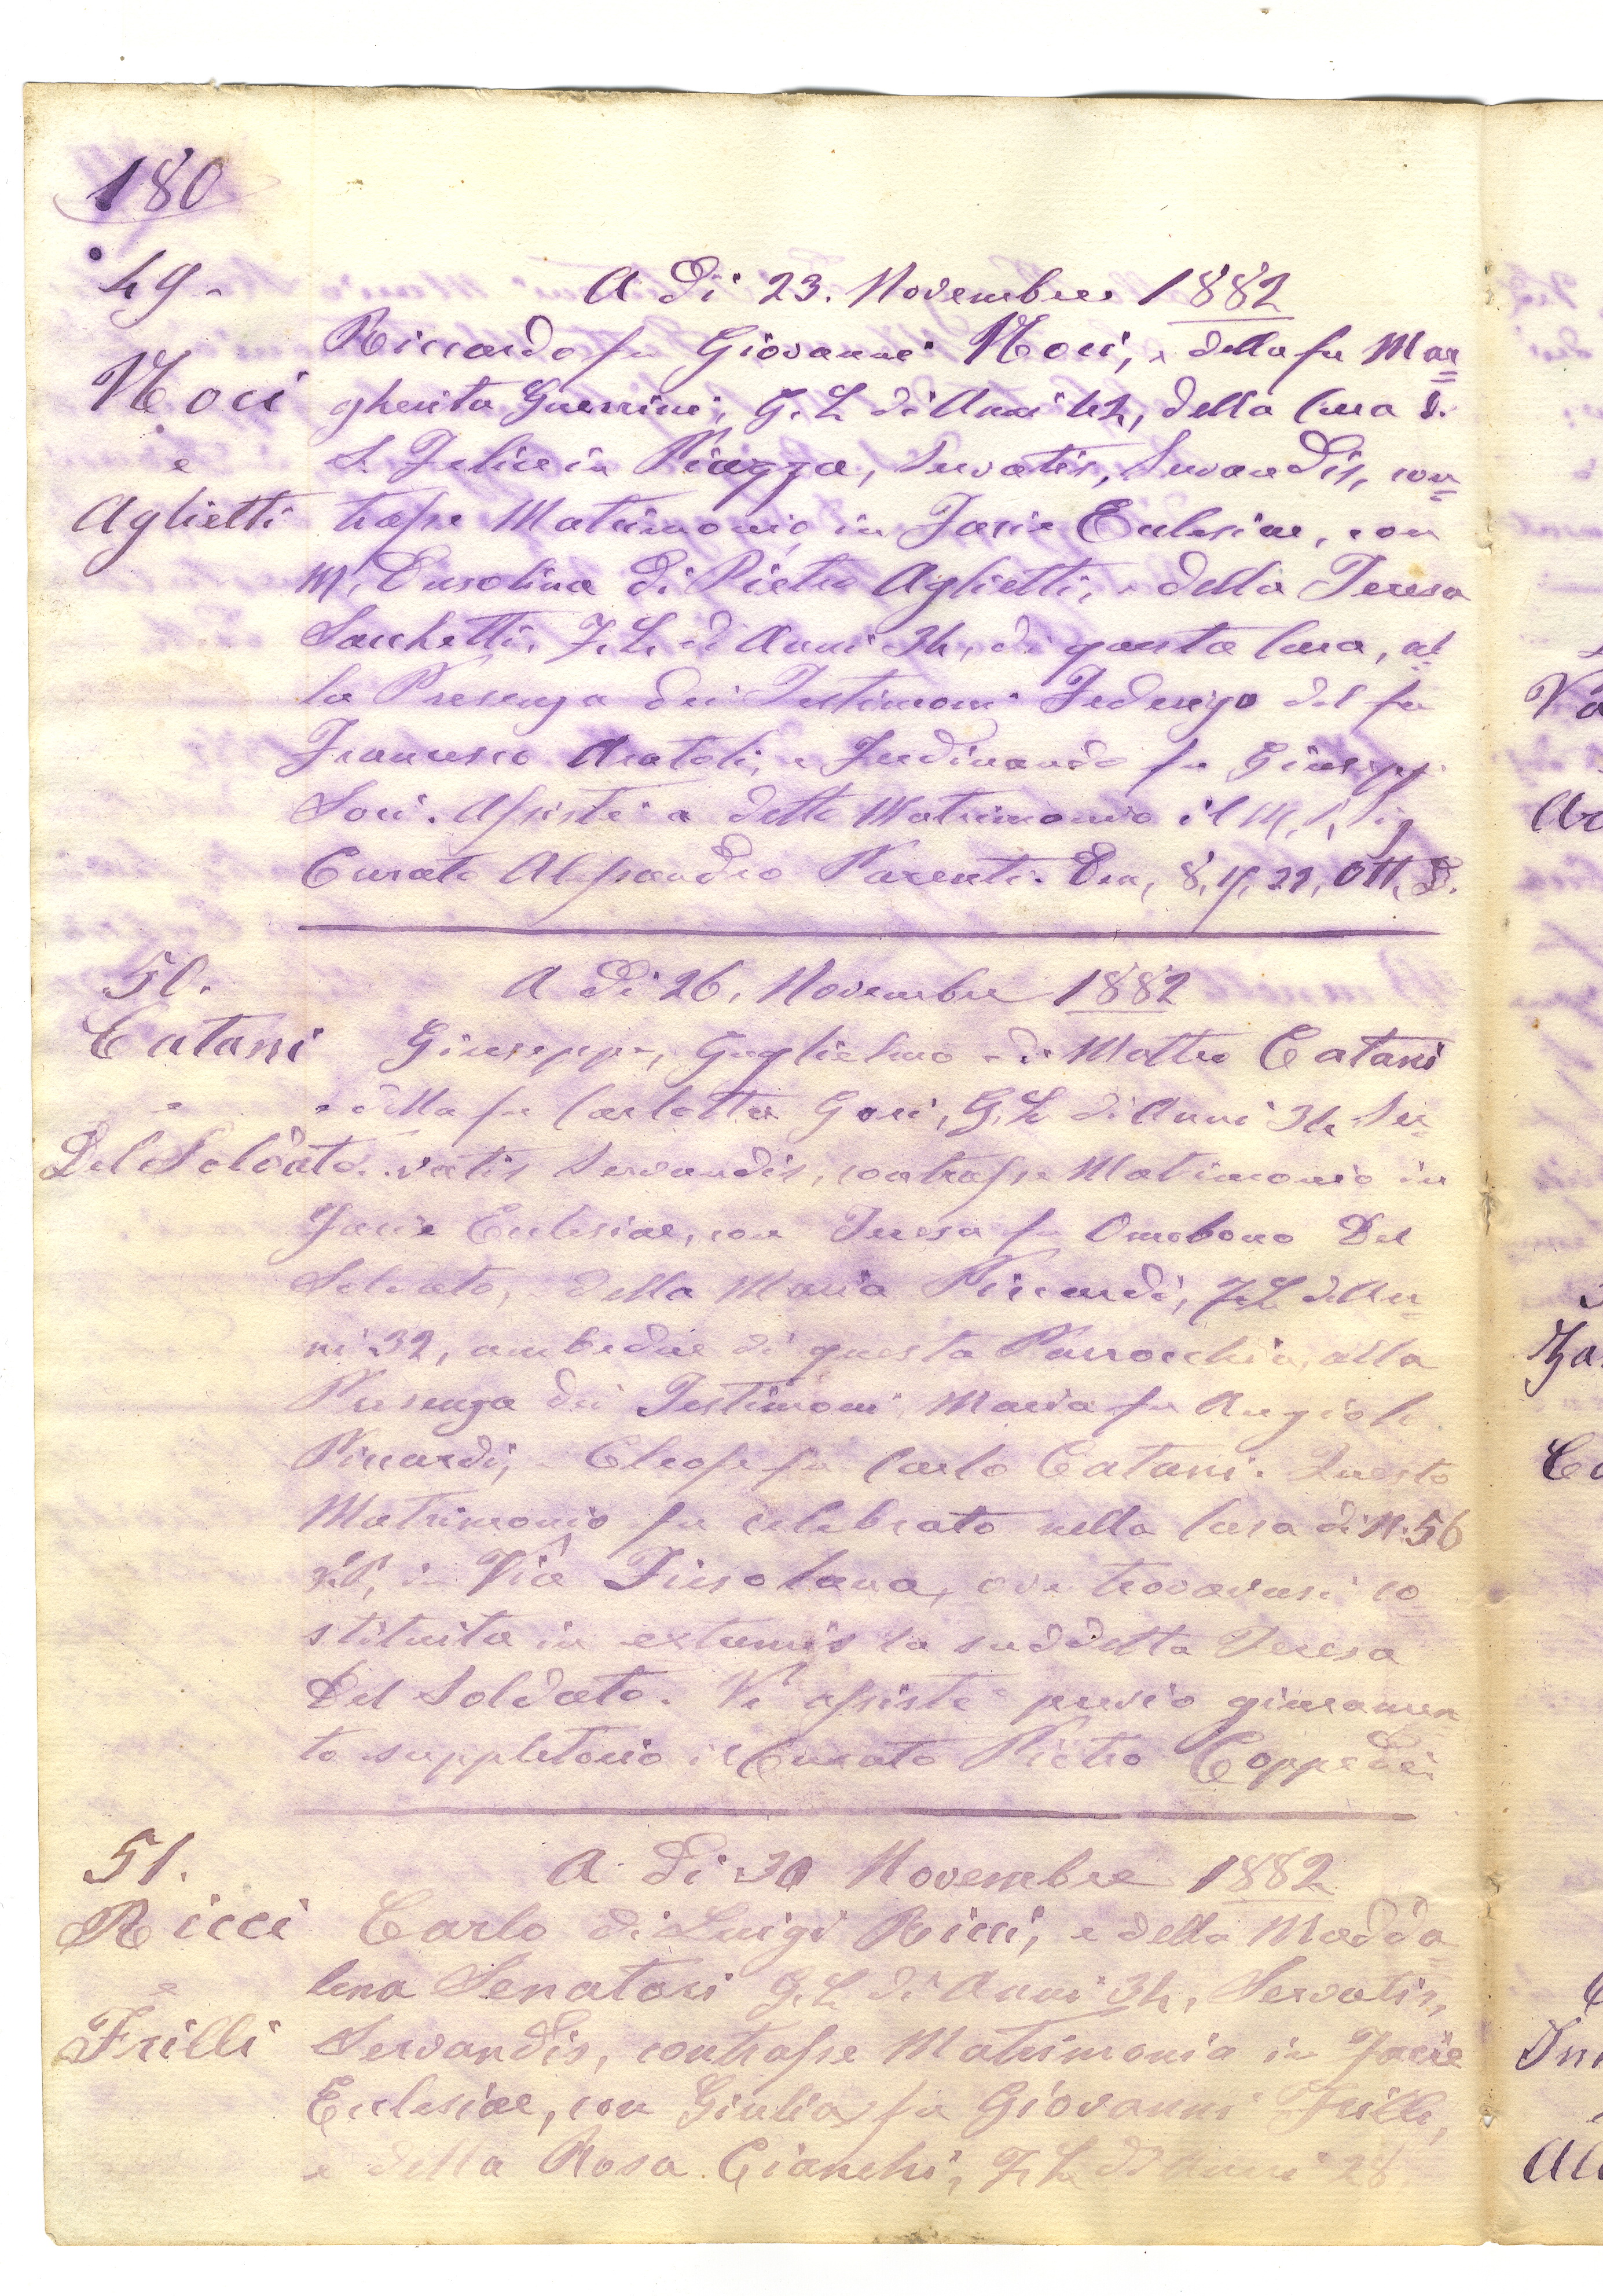 180
49.
Noci
e
Aglietti
A dì 23. Novembre 1882
Riccardo fu Giovanni Noci, e della fu Mar=
gherita Guerrini, G. L. di Anni 42, della Cura di
S. Felice in Piazza, Servatis, Servandis, con=
trasse Matrimonio in Facie Eclesiae, con
M. Ersolina di Pietro Aglietti, e della Teresa
Sacchetti, F. L. di Anni 34, di questa Cura, al
la Presenza dei Testimoni Federigo del fu
Francesco Anatoli, e Ferdinando fu Giuseppe
Soci. Assistè a detto Matrimonio il M. R. Sig
Curato Alessandro Parenti. Den, 8, 15, 22, Ott. D.
50.
Catani
e
Del Soldato
A dì 26. Novembre 1882
Giuseppe, Guglielmo di Matteo Catani
e della fu Carlotta Gori, G. L. di Anni 34 Ser=
vatis Servandis, contrasse Matrimonio in
Facie Eclesiae, con Teresa fu Omobono Del
Soldato, e della Maria Piccardi, F. L. di An=
ni 32, ambedue di questa Parrocchia, alla
Presenza dei Testimoni Maria fu Angiolo
Piccardi, e Cleofe fu Carlo Catani. Questo
Matrimonio fu celebrato nella Casa di N. 56
in Via Fiesolana, ove trovavasi co
stituita in extremis la suddetta Teresa
Del Soldato. Vi assistè previo giuramen
to suppletorio il Curato Pietro Coppedei
51.
Ricci
e
Frilli
A dì 30 Novembre 1882
Carlo di Luigi Ricci, e della Madda=
lena Senatori G. L. di Anni 34, Servatis,
Servandis, contrasse Matrimonio in Facie
Eclesiae, con Giulia fu Giovanni Frilli,
e della Rosa Cianchi, F. L. di Anni 28,